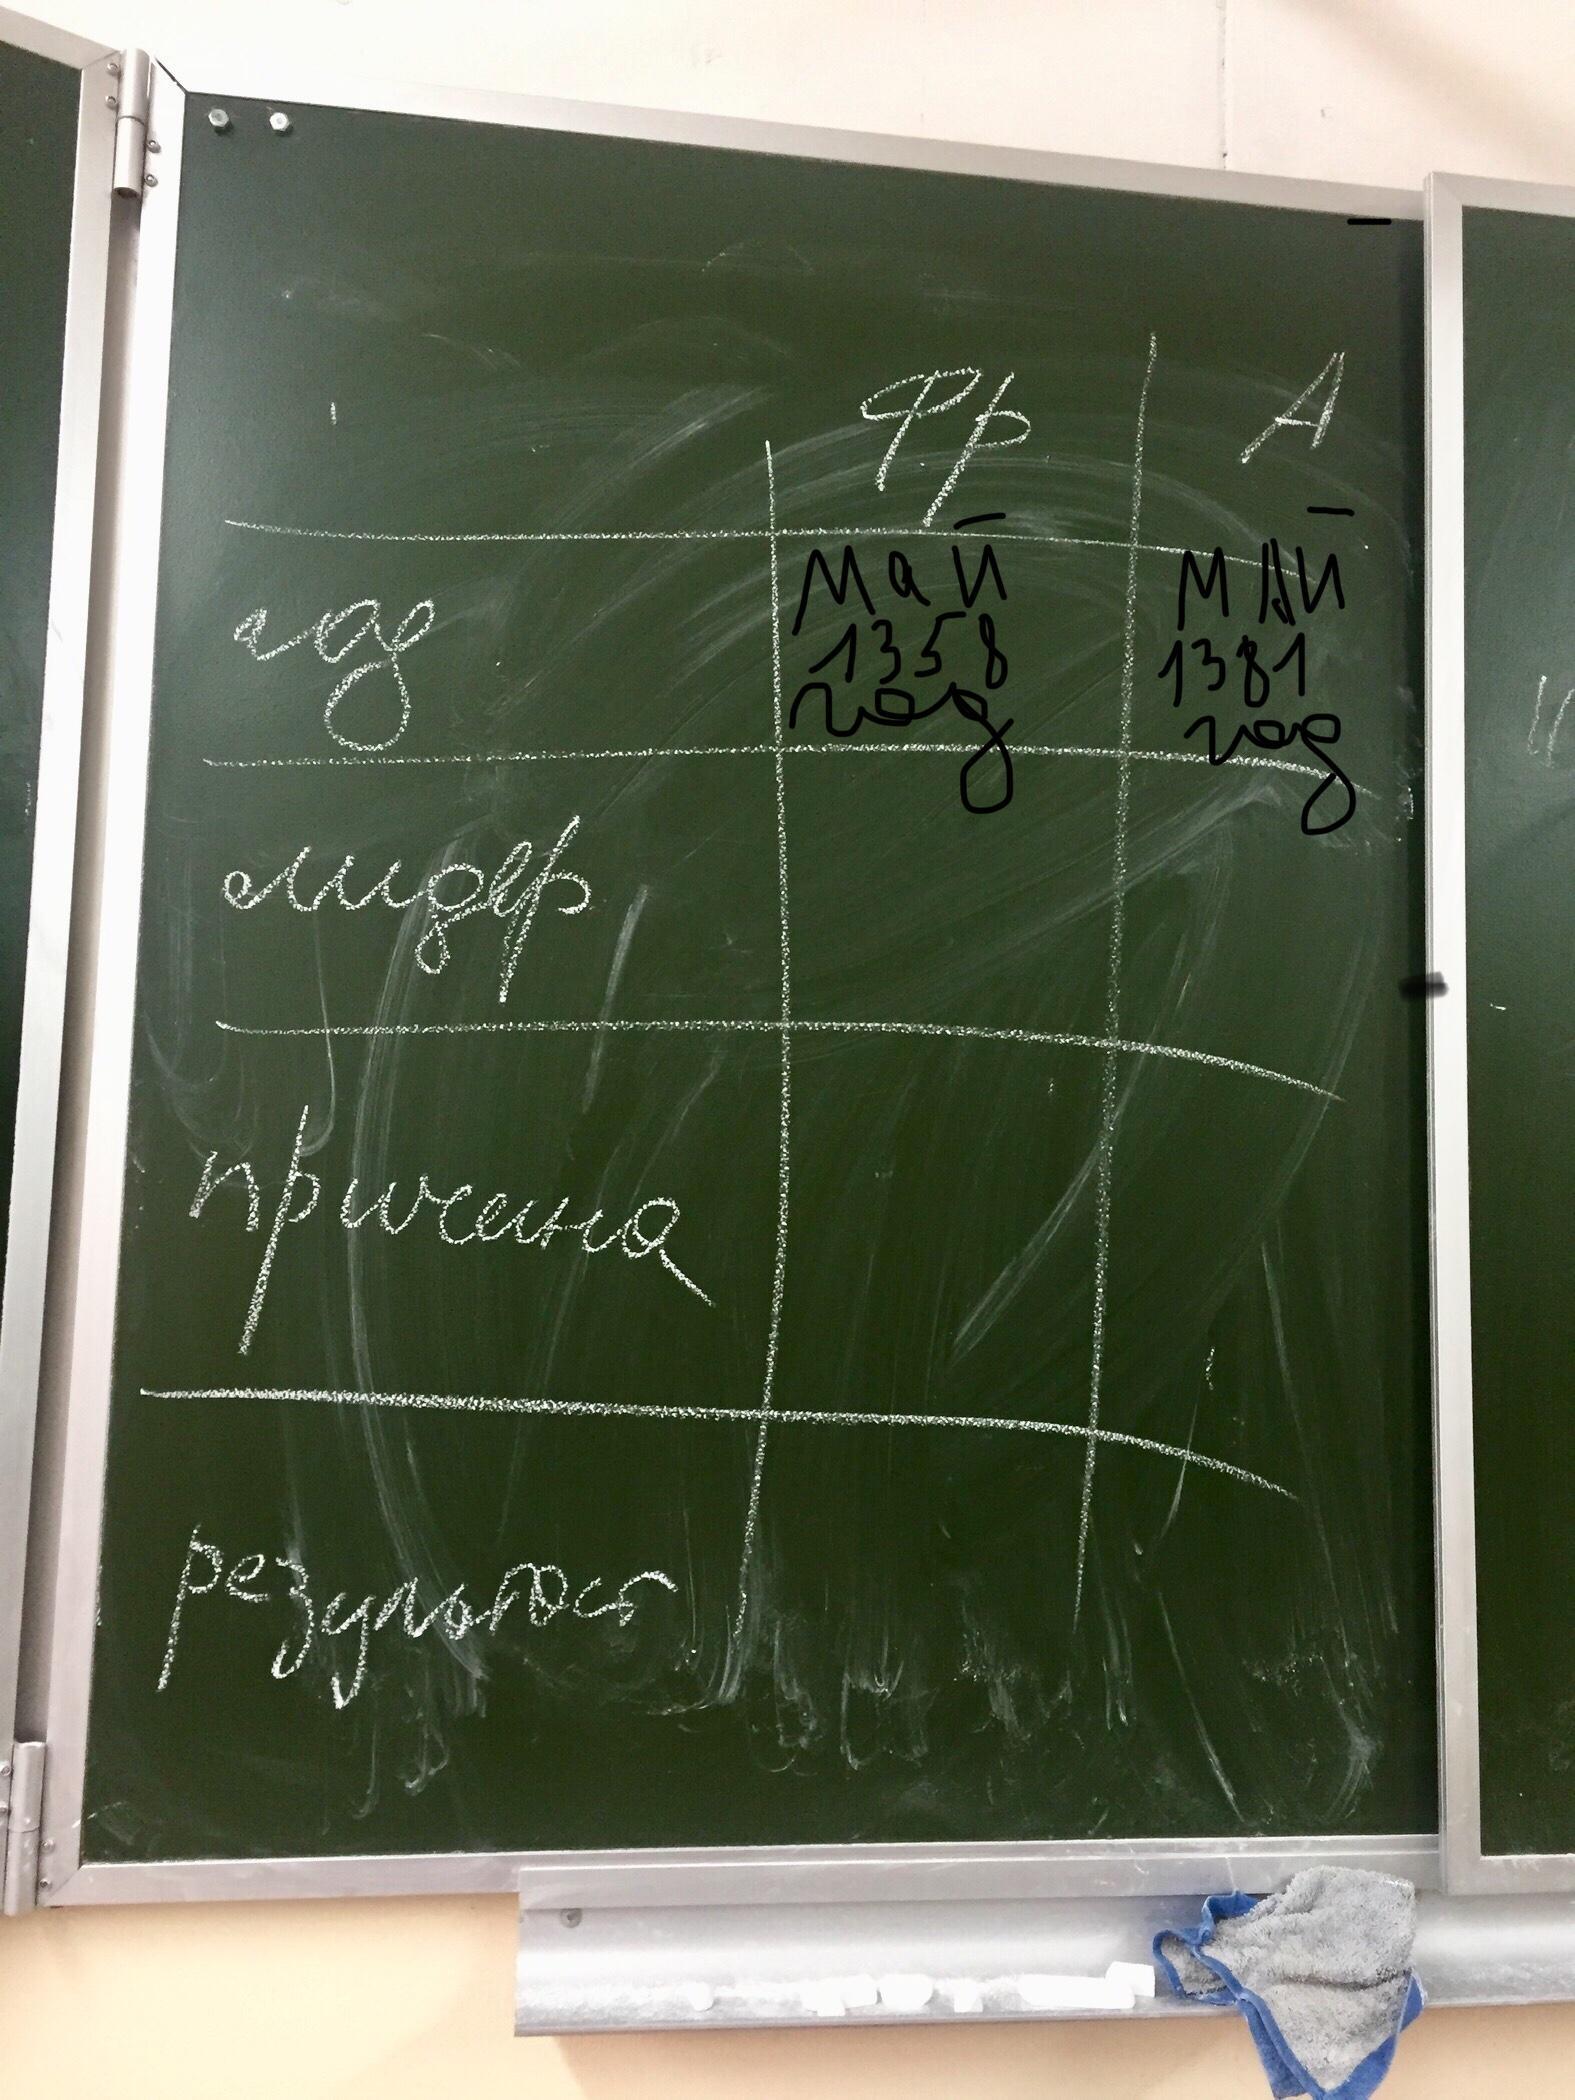 Фр А
год
май
1358
год
МАЙ
1381
год
лидер
причина
результат